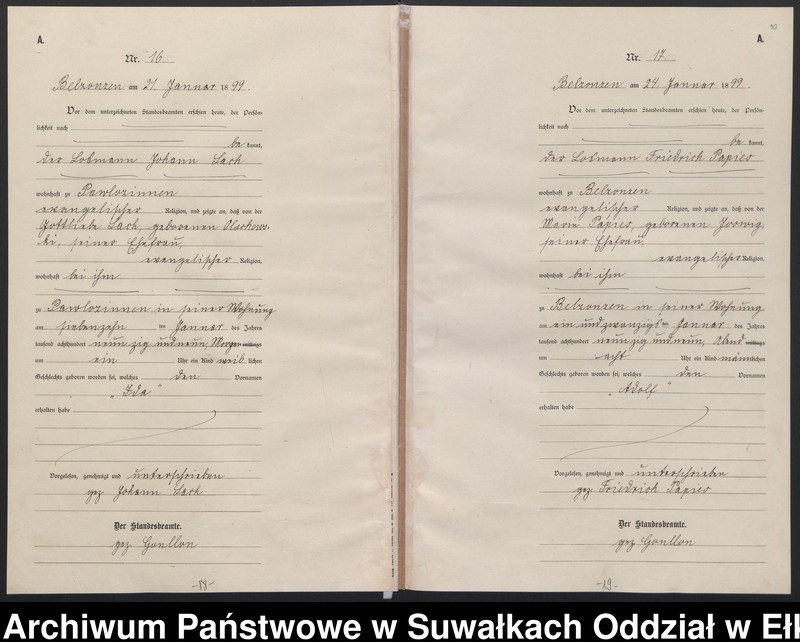 A.
Nr. 16
Belzonzen am 21 Januar 1899.
Vor dem unterzeichneten Standesbeamten erschien heute, der Persön-
lichkeit nach
be kannt,
der Losmann Johann Lach
wohnhaft zu Pawlozinnen
evangelischer Religion, und zeigte an, daß von der
Gottliebe Lach, geborenen Olschews-
ki, seiner Ehefrau,
evangelischer Religion,
wohnhaft bei ihm
zu Pawlozinnen in seiner Wohnung
am siebenzehn ten Januar des Jahres
tausend achthundert neunzig und neun, Morgens
um ein Uhr ein Kind weib lichen
Geschlechts geboren worden sei, welches den Vornamen
„Ida"
erhalten habe
Vorgelesen, genehmigt und unterschrieben
gez Johann Lach
Der Standesbeamte.
gez Gonllon
-18-
90
A.
Nr. 17
Belzonzen am 24 Januar 1899.
Vor dem unterzeichneten Standesbeamten erschien heute, der Persön-
lichkeit nach
be kannt,
der Losmann Friedrich Papies
wohnhaft zu Belzonzen
evangelischer Religion, und zeigte an, daß von der
Marie Papies, geborenen
seiner Ehefrau,
evangelischer Religion,
wohnhaft bei ihm
zu Belzonzen in seiner Wohnung
am ein und zwanzigsten Januar des Jahres
tausend achthundert neunzig und neun, Abend
um acht Uhr ein Kind männlichen
Geschlechts geboren worden sei, welches den Vornamen
„Adolf"
erhalten habe
Vorgelesen, genehmigt und unterschrieben
gez Friedrich Papies
Der Standesbeamte.
gez Gonllon
-19-
Archiwum Państwowe w Suwałkach Oddział w Eł